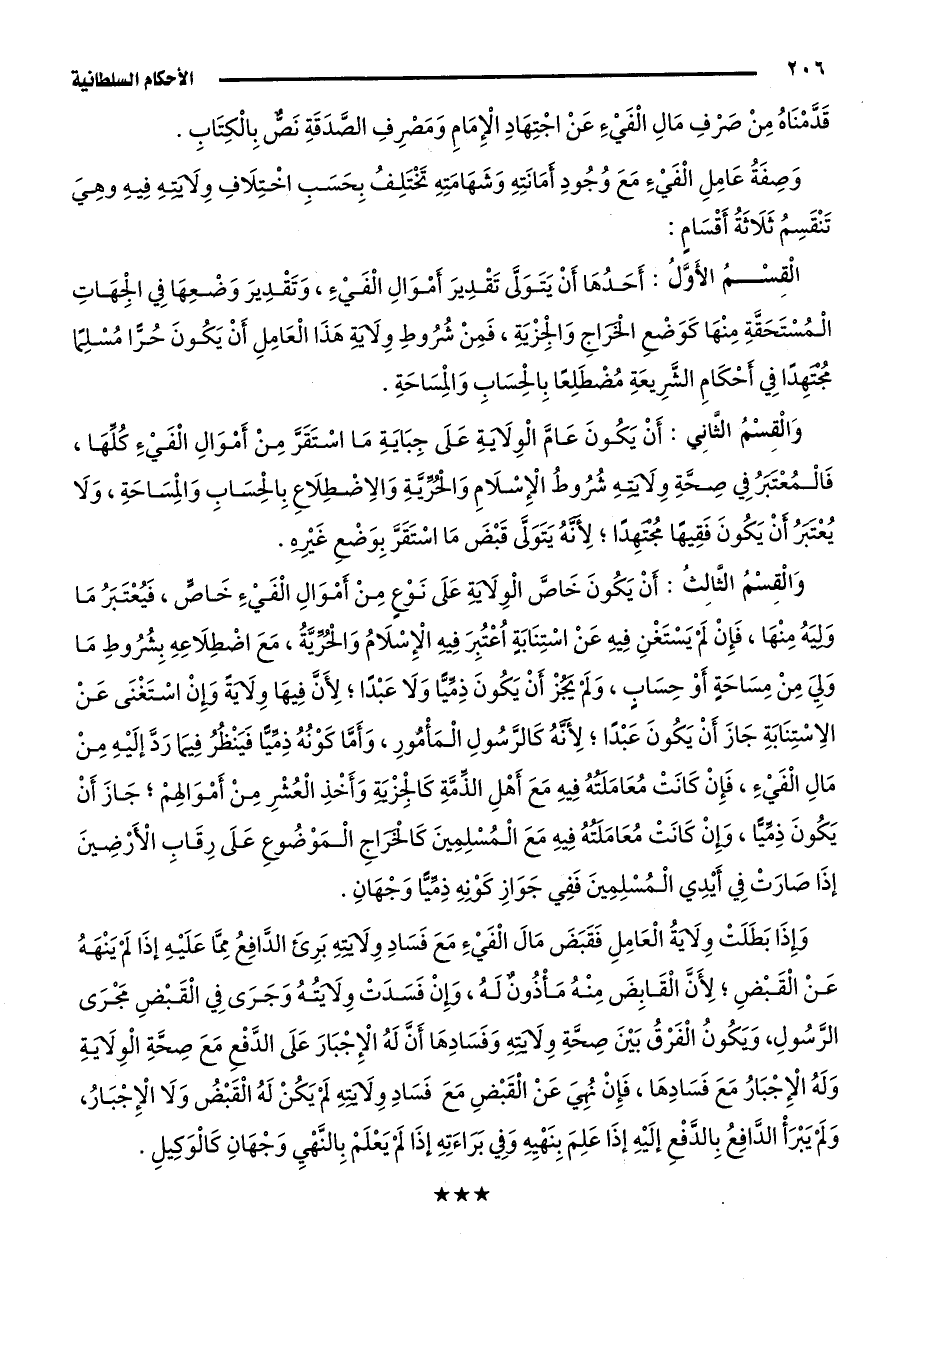 ٢٠٦ الأحكام السلطانية
قَدَّمْنَاهُ مِنْ صَرْفِ مَالِ الْفَيْءِ عَنْ اجْتِهَادِ الْإِمَامِ وَمَصْرِفِ الصَّدَقَةِ نَصٌّ بِالْكِتَابِ .
وَصِفَةُ عَامِلِ الْفَيْءِ مَعَ وُجُودِ أَمَانَتِهِ وَشَهَامَتِهِ تَخْتَلِفُ بِحَسَبِ اخْتِلَافِ وِلَايَتِهِ فِيهِ وهِيَ
تَنْقَسِمُ ثَلَاثَةُ أَقْسَامٍ :
الْقِسْمُ الأَوَّلُ : أَحَدُهَا أَنْ يَتَوَلَّى تَقْدِيرَ أَمْوَالِ الْفَيْءِ ، وَتَقْدِيرَ وَضْعِهَا فِي الْجِهَاتِ
الْمُسْتَحَقَّةِ مِنْهَا كَوَضْعِ الْخَرَاجِ وَالْجِزْيَةِ ، فَمِنْ شُرُوطِ وِلَايَةِ هَذَا الْعَامِلِ أَنْ يَكُونَ حُرًّا مُسْلِمًا
مُجْتَهِدًا فِي أَحْكَامِ الشَّرِيعَةِ مُضْطَلِعًا بِالْحِسَابِ وَالْمِسَاحَةِ .
وَالْقِسْمُ الثَّانِي : أَنْ يَكُونَ عَامَّ الْوِلَايَةِ عَلَى جِبَايَةِ مَا اسْتَقَرَّ مِنْ أَمْوَالِ الْفَيْءِ كُلِّهَا ،
فَالْمُعْتَبَرُ فِي صِحَّةِ وِلَايَتِهِ شُرُوطُ الْإِسْلَامِ وَالْحُرِّيَّةِ وَالِاضْطِلَاعِ بِالْحِسَابِ وَالْمِسَاحَةِ ، وَلَا
يُعْتَبَرُ أَنْ يَكُونَ فَقِيهًا مُجْتَهِدًا ؛ لِأَنَّهُ يَتَوَلَّى قَبْضَ مَا اسْتَقَرَّ بِوَضْعِ غَيْرِهِ .
وَالْقِسْمُ الثَّالِثُ : أَنْ يَكُونَ خَاصَّ الْوِلَايَةِ عَلَى نَوْعٍ مِنْ أَمْوَالِ الْفَيْءِ خَاصٍّ ، فَيُعْتَبَرُ مَا
وَلِيَهُ مِنْهَا ، فَإِنْ لَمْ يَسْتَغْنِ فِيهِ عَنْ اسْتِنَابَةٍ أُعْتُبِرَ فِيهِ الْإِسْلَامُ وَالْحُرِّيَّةُ ، مَعَ اضْطِلَاعِهِ بِشُرُوطِ مَا
وَلِيَ مِنْ مِسَاحَةٍ أَوْ حِسَابٍ ، وَلَمْ يَجُزْ أَنْ يَكُونَ ذِمِّيًّا وَلَا عَبْدًا ؛ لِأَنَّ فِيهَا وِلَايَةً وَإِنْ اسْتَغْنَى عَنْ
الِاسْتِنَابَةِ جَازَ أَنْ يَكُونَ عَبْدًا ؛ لِأَنَّهُ كَالرَّسُولِ الْمَأْمُورِ ، وَأَمَّا كَوْنُهُ ذِمِّيًّا فَيَنْظُرُ فِيمَا رَدَّ إلَيْهِ مِنْ
مَالِ الْفَيْءِ ، فَإِنْ كَانَتْ مُعَامَلَتُهُ فِيهِ مَعَ أَهْلِ الذِّمَّةِ كَالْجِزْيَةِ وَأَخْذِ الْعُشْرِ مِنْ أَمْوَالِهِمْ ؛ جَازَ أَنْ
يَكُونَ ذِمِّيًّا ، وَإِنْ كَانَتْ مُعَامَلَتُهُ فِيهِ مَعَ الْمُسْلِمِينَ كَالْخَرَاجِ الْمَوْضُوعِ عَلَى رِقَابِ الْأَرْضِينَ
إذَا صَارَتْ فِي أَيْدِي الْمُسْلِمِينَ فَفِي جَوَازِ كَوْنِهِ ذِمِّيًّا وَجْهَانِ .
وَإِذَا بَطَلَتْ وِلَايَةُ الْعَامِلِ فَقَبَضَ مَالَ الْفَيْءِ مَعَ فَسَادِ وِلَايَتِهِ بَرِئَ الدَّافِعُ مِمَّا عَلَيْهِ إذَا لَمْ يَنْهَهُ
عَنْ الْقَبْضِ ؛ لِأَنَّ الْقَابِضَ مِنْهُ مَأْذُونٌ لَهُ ، وَإِنْ فَسَدَتْ وِلَايَتُهُ وَجَرَى فِي الْقَبْضِ مَجْرَى
الرَّسُولِ، وَيَكُونُ الْفَرْقُ بَيْنَ صِحَّةِ وِلَايَتِهِ وَفَسَادِهَا أَنَّ لَهُ الْإِجْبَارَ عَلَى الدَّفْعِ مَعَ صِحَّةِ الْوِلَايَةِ
وَلَهُ الْإِجْبَارُ مَعَ فَسَادِهَا ، فَإِنْ نُهِيَ عَنْ الْقَبْضِ مَعَ فَسَادِ وِلَايَتِهِ لَمْ يَكُنْ لَهُ الْقَبْضُ وَلَا الْإِجْبَارُ،
وَلَمْ يَبْرَأْ الدَّافِعُ بِالدَّفْعِ إلَيْهِ إذَا عَلِمَ بِنَهْيِهِ وَفِي بَرَاءَتِهِ إذَا لَمْ يَعْلَمْ بِالنَّهْيِ وَجْهَانِ كَالْوَكِيلِ .
★★★